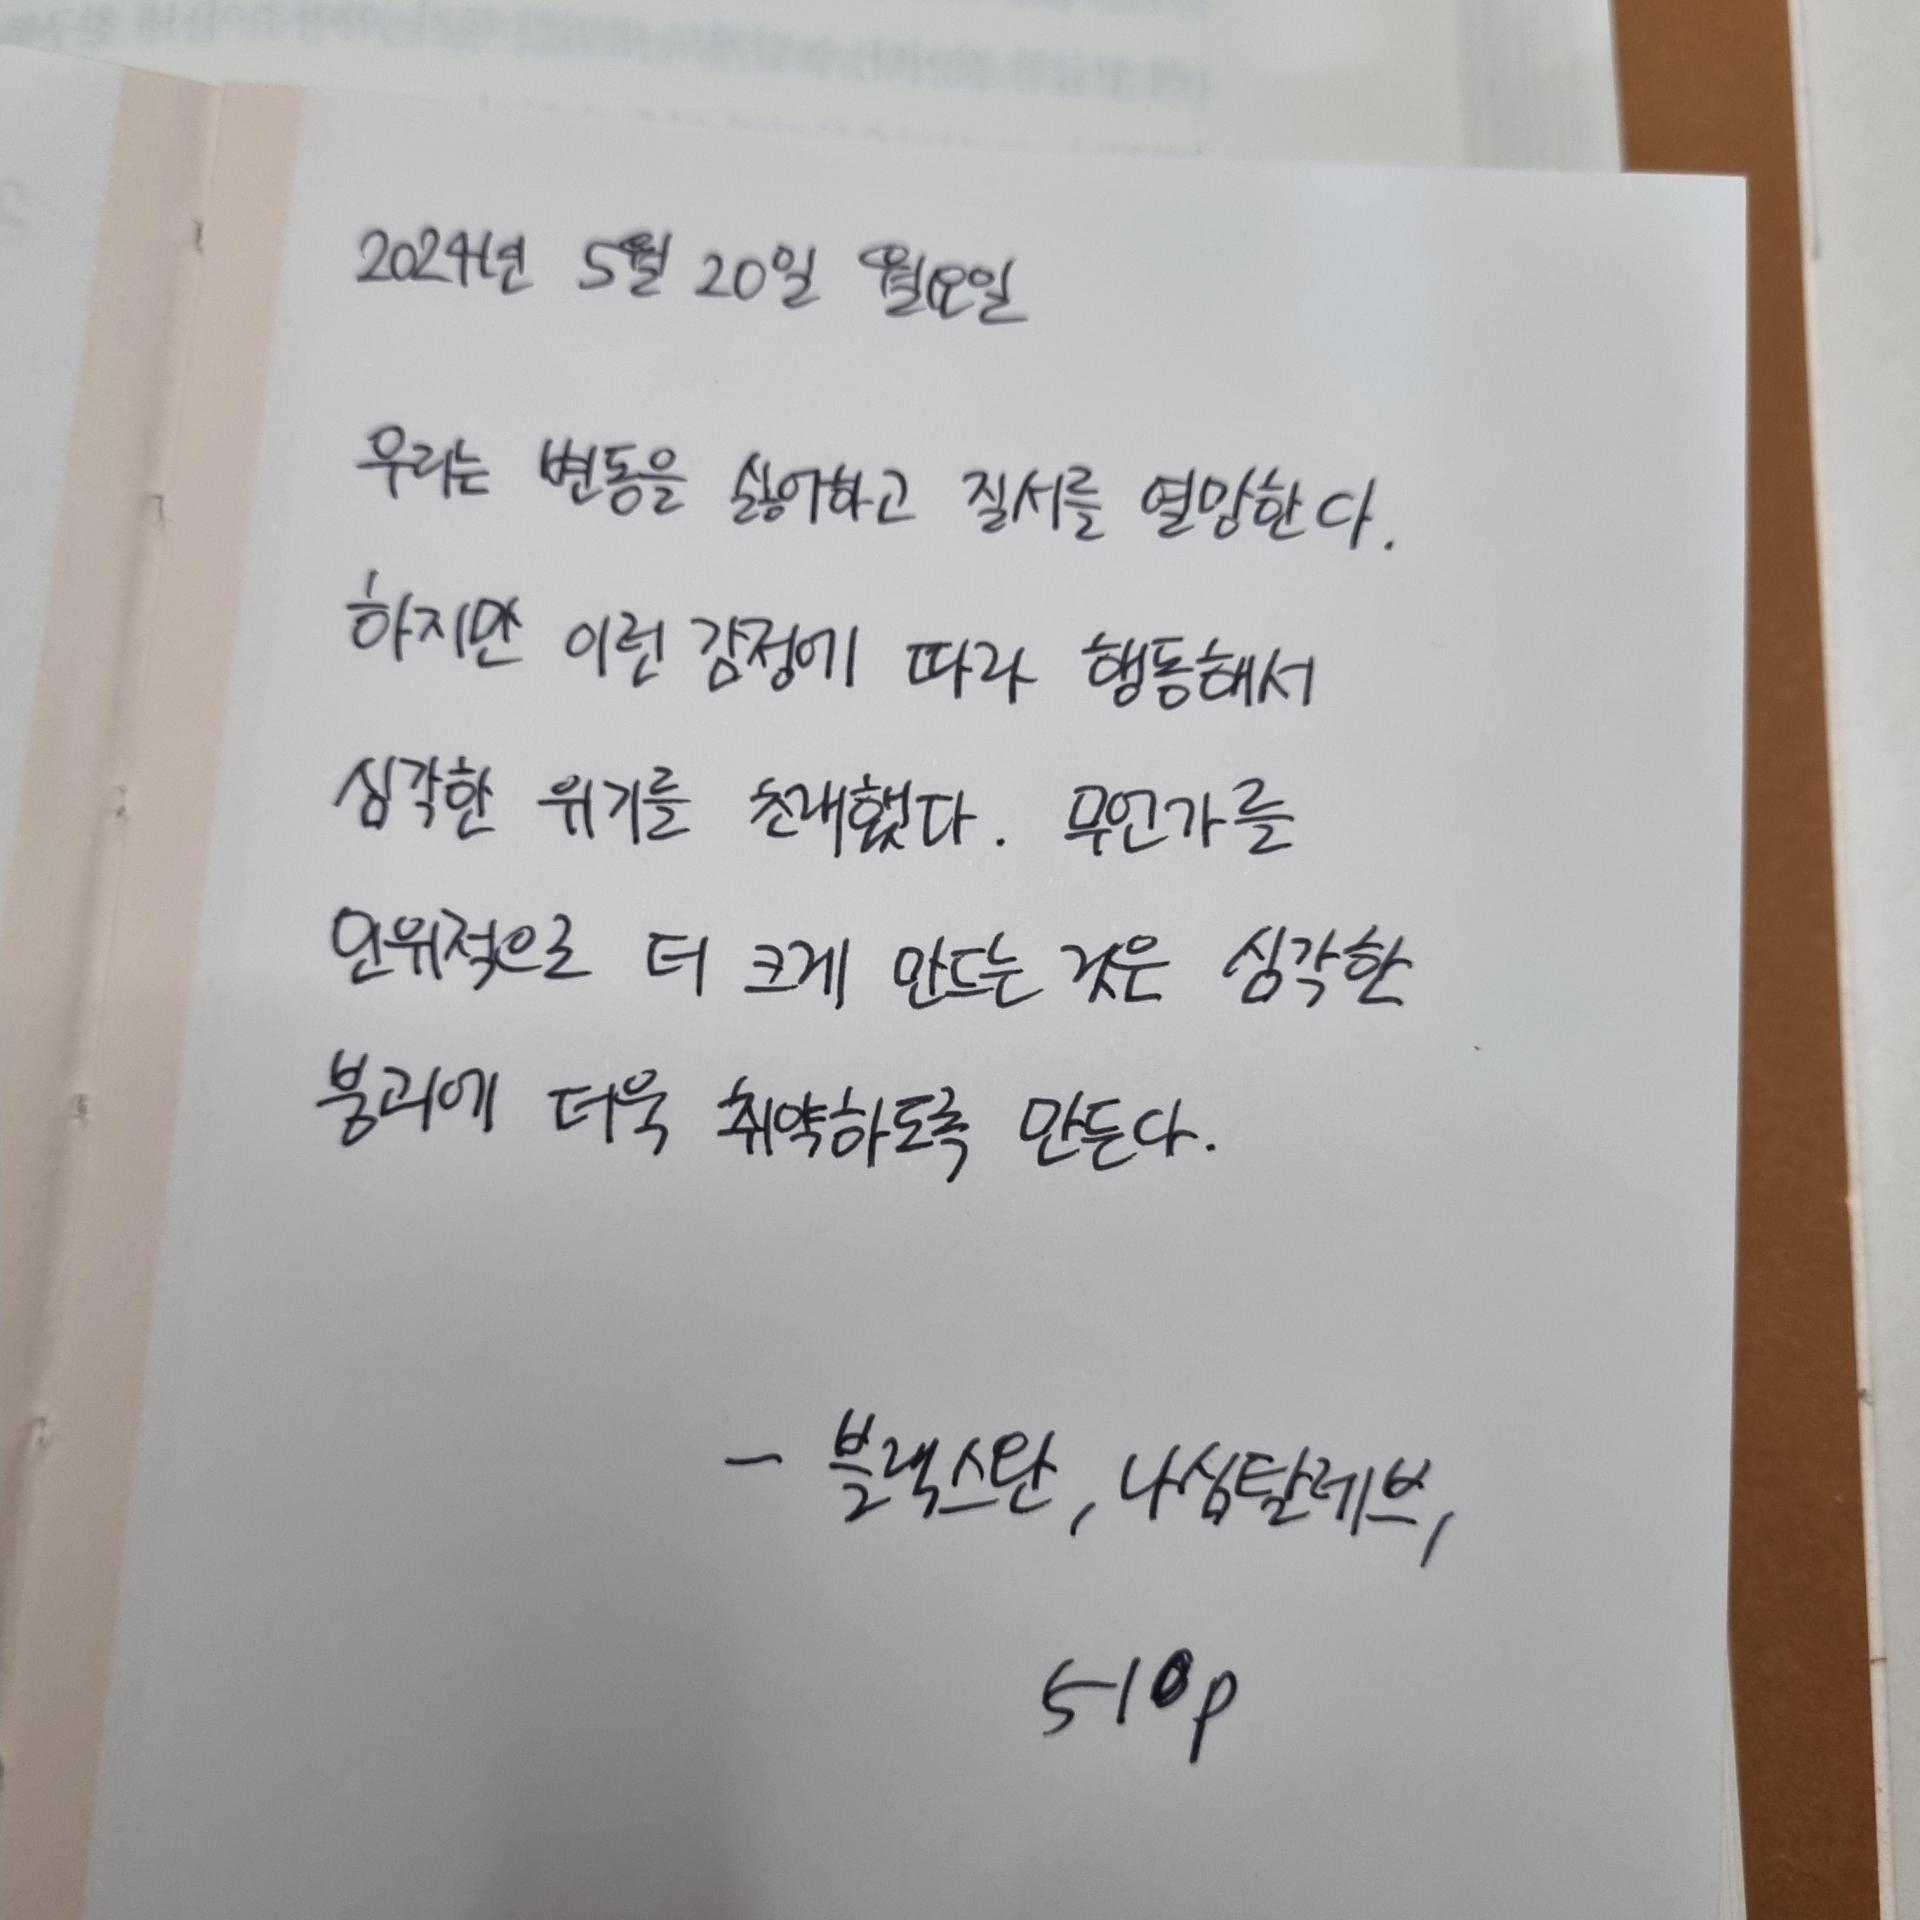 2024년 5월 20일 월요일
우리는 변동을 싫어하고 질서를 열망한다.
하지만 이런 감정에 따라 행동해서
심각한 위기를 초래했다. 무언가를
인위적으로 더 크게 만드는 것은 심각한
붕괴에 더욱 취약하도록 만든다.
- 블랙스완, 나심탈레브,
510p